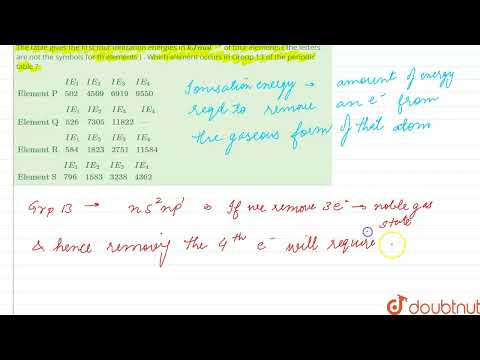 The table gives the first four ionization energies in kJ mol⁻¹ of four elements ( the letters
are not the symbols for th elements ) . Which element occurs in Group 13 of the periodic
table ?
IE₁ IE₂ IE₃ IE₄
Element P 502 4569 6919 9550
IE₁ IE₂ IE₃ IE₄
Element Q 526 7305 11822 —
IE₁ IE₂ IE₃ IE₄
Element R 584 1823 2751 11584
IE₁ IE₂ IE₃ IE₄
Element S 796 1583 3238 4362
Ionisation energy → amount of energy
reqd to remove an e⁻ from
the gaseous form of that atom
Grp 13 → ns²np¹ If we remove 3e⁻ → noble gas
state
& hence removing the 4th e⁻ will require
doubtnut